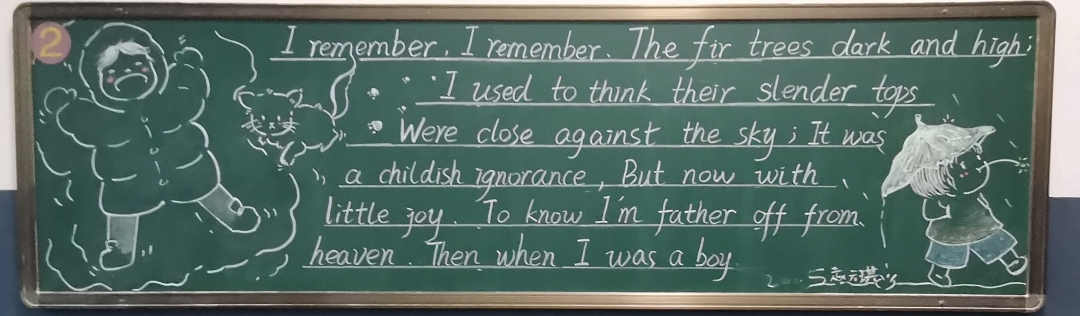 2
I remember, I remember. The fir trees dark and high;
I used to think their slender tops
Were close against the sky; It was
a childish ignorance, But now with
little joy. To know I'm father off from
heaven. Then when I was a boy